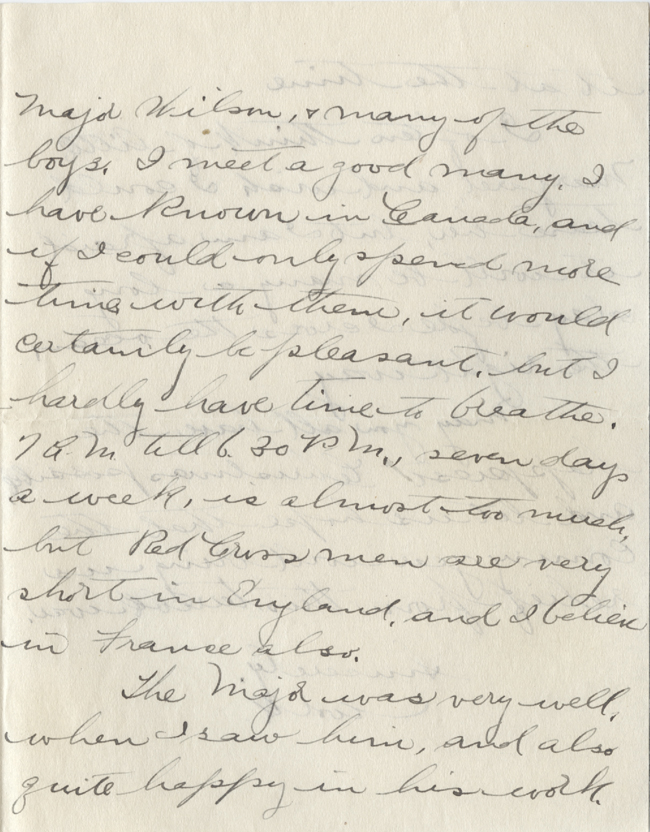 Major Wilson, & many of the
boys. I meet a good many, I
have known in Canada, and
if I could only spend more
time with them, it would
certainly be pleasant, but I
hardly have time to breathe.
7 A.M. till 6.30 P.M., seven days
a week, is almost too much,
but Red Cross men are very
short in England, and I believe
in France also.
The Major was very well,
when I saw him, and also
quite happy in his work.